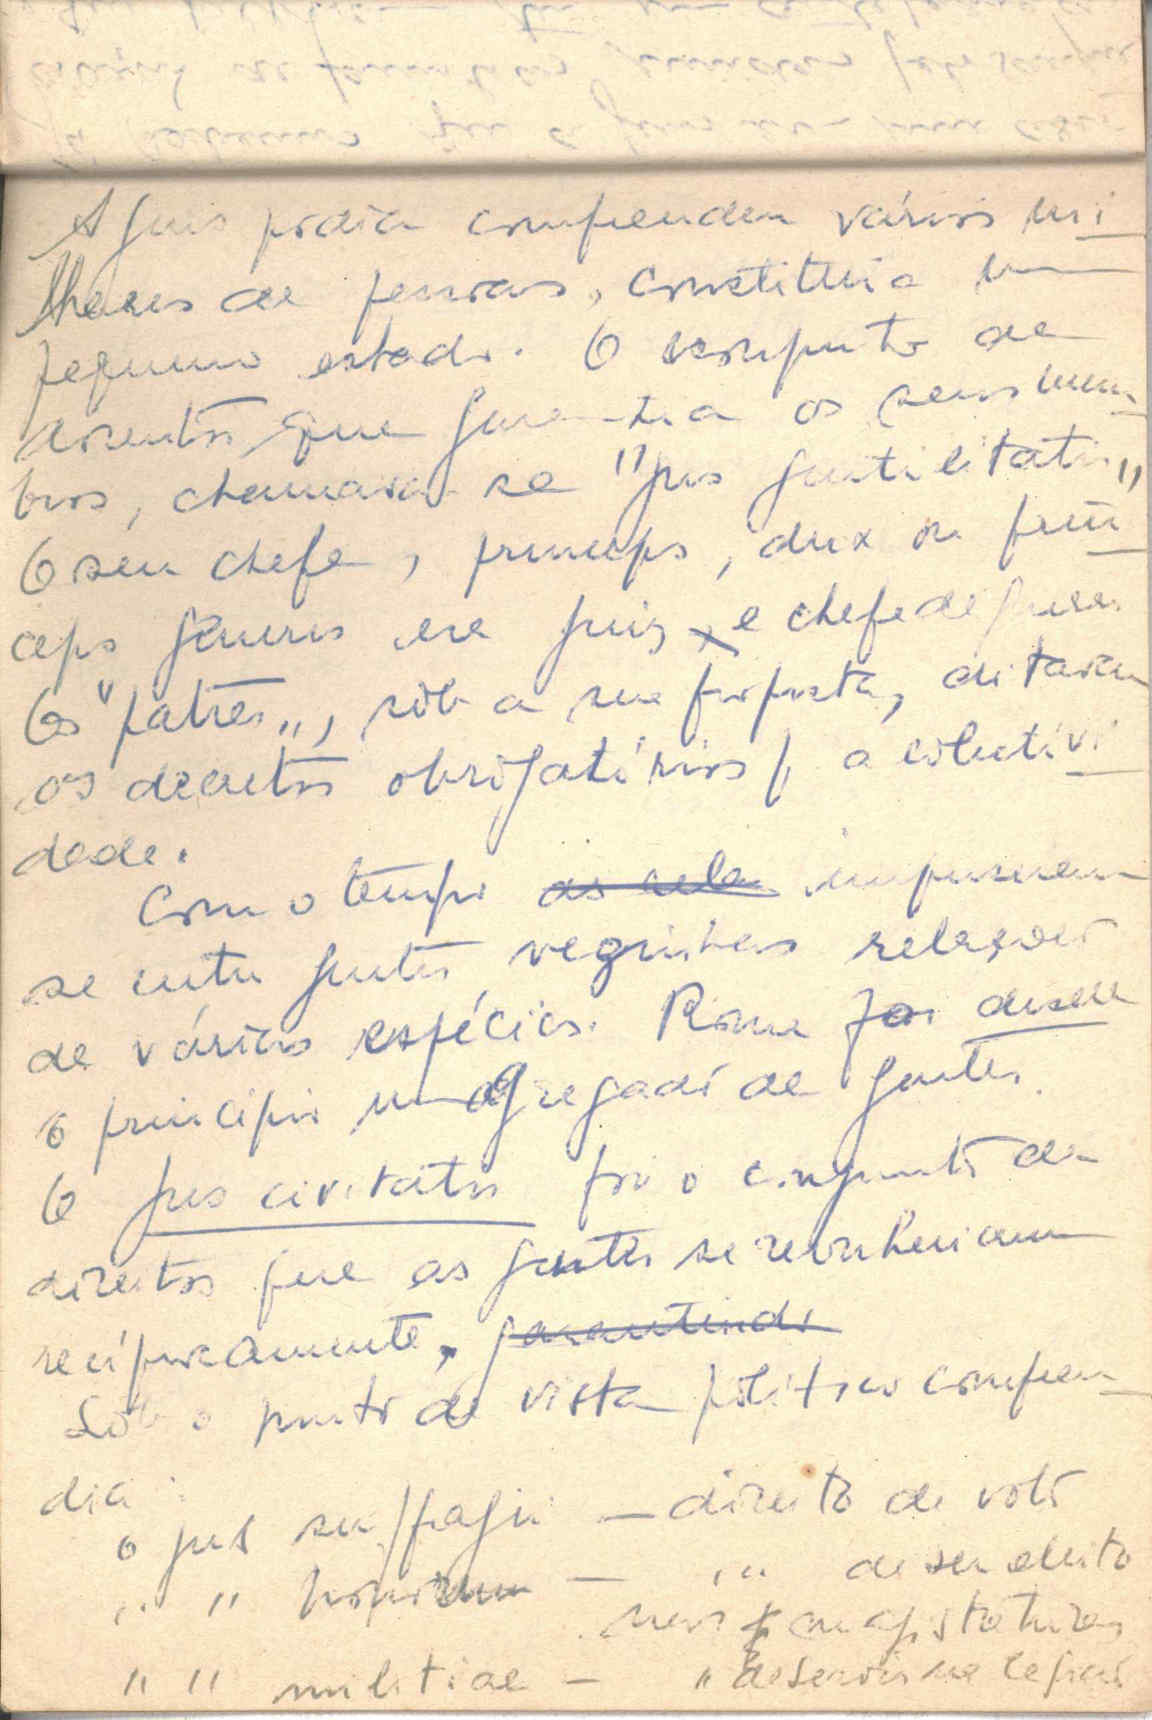 A gens podia compreender vários mi
lhares de pessoas, constituia um
pequeno estado. O conjunto de
direitos que garantia os seus mem
bros, chamava-se "jus gentilitatis"
O seu chefe, princeps, dux ou prin
ceps gentis era juiz, e chefe de guerra
Os "patres", sob a sua proposta, ditavam
os decretos obrigatórios p/ a coletivi
dade.
Com o tempo as rela impuseram-
se entre gentes vezinhas relações
de várias espécies. Roma foi desde
o princípio um agregado de gentes.
O jus civitatis foi o conjunto de
direitos que as gentes se reconheciam
reciprocamente, garantindo
Sob o ponto de vista politico compreen
dia:
o jus suffragii – direito de voto
" " honorum – " de ser eleito
nas magistraturas
" " militiae – " de servir na legião